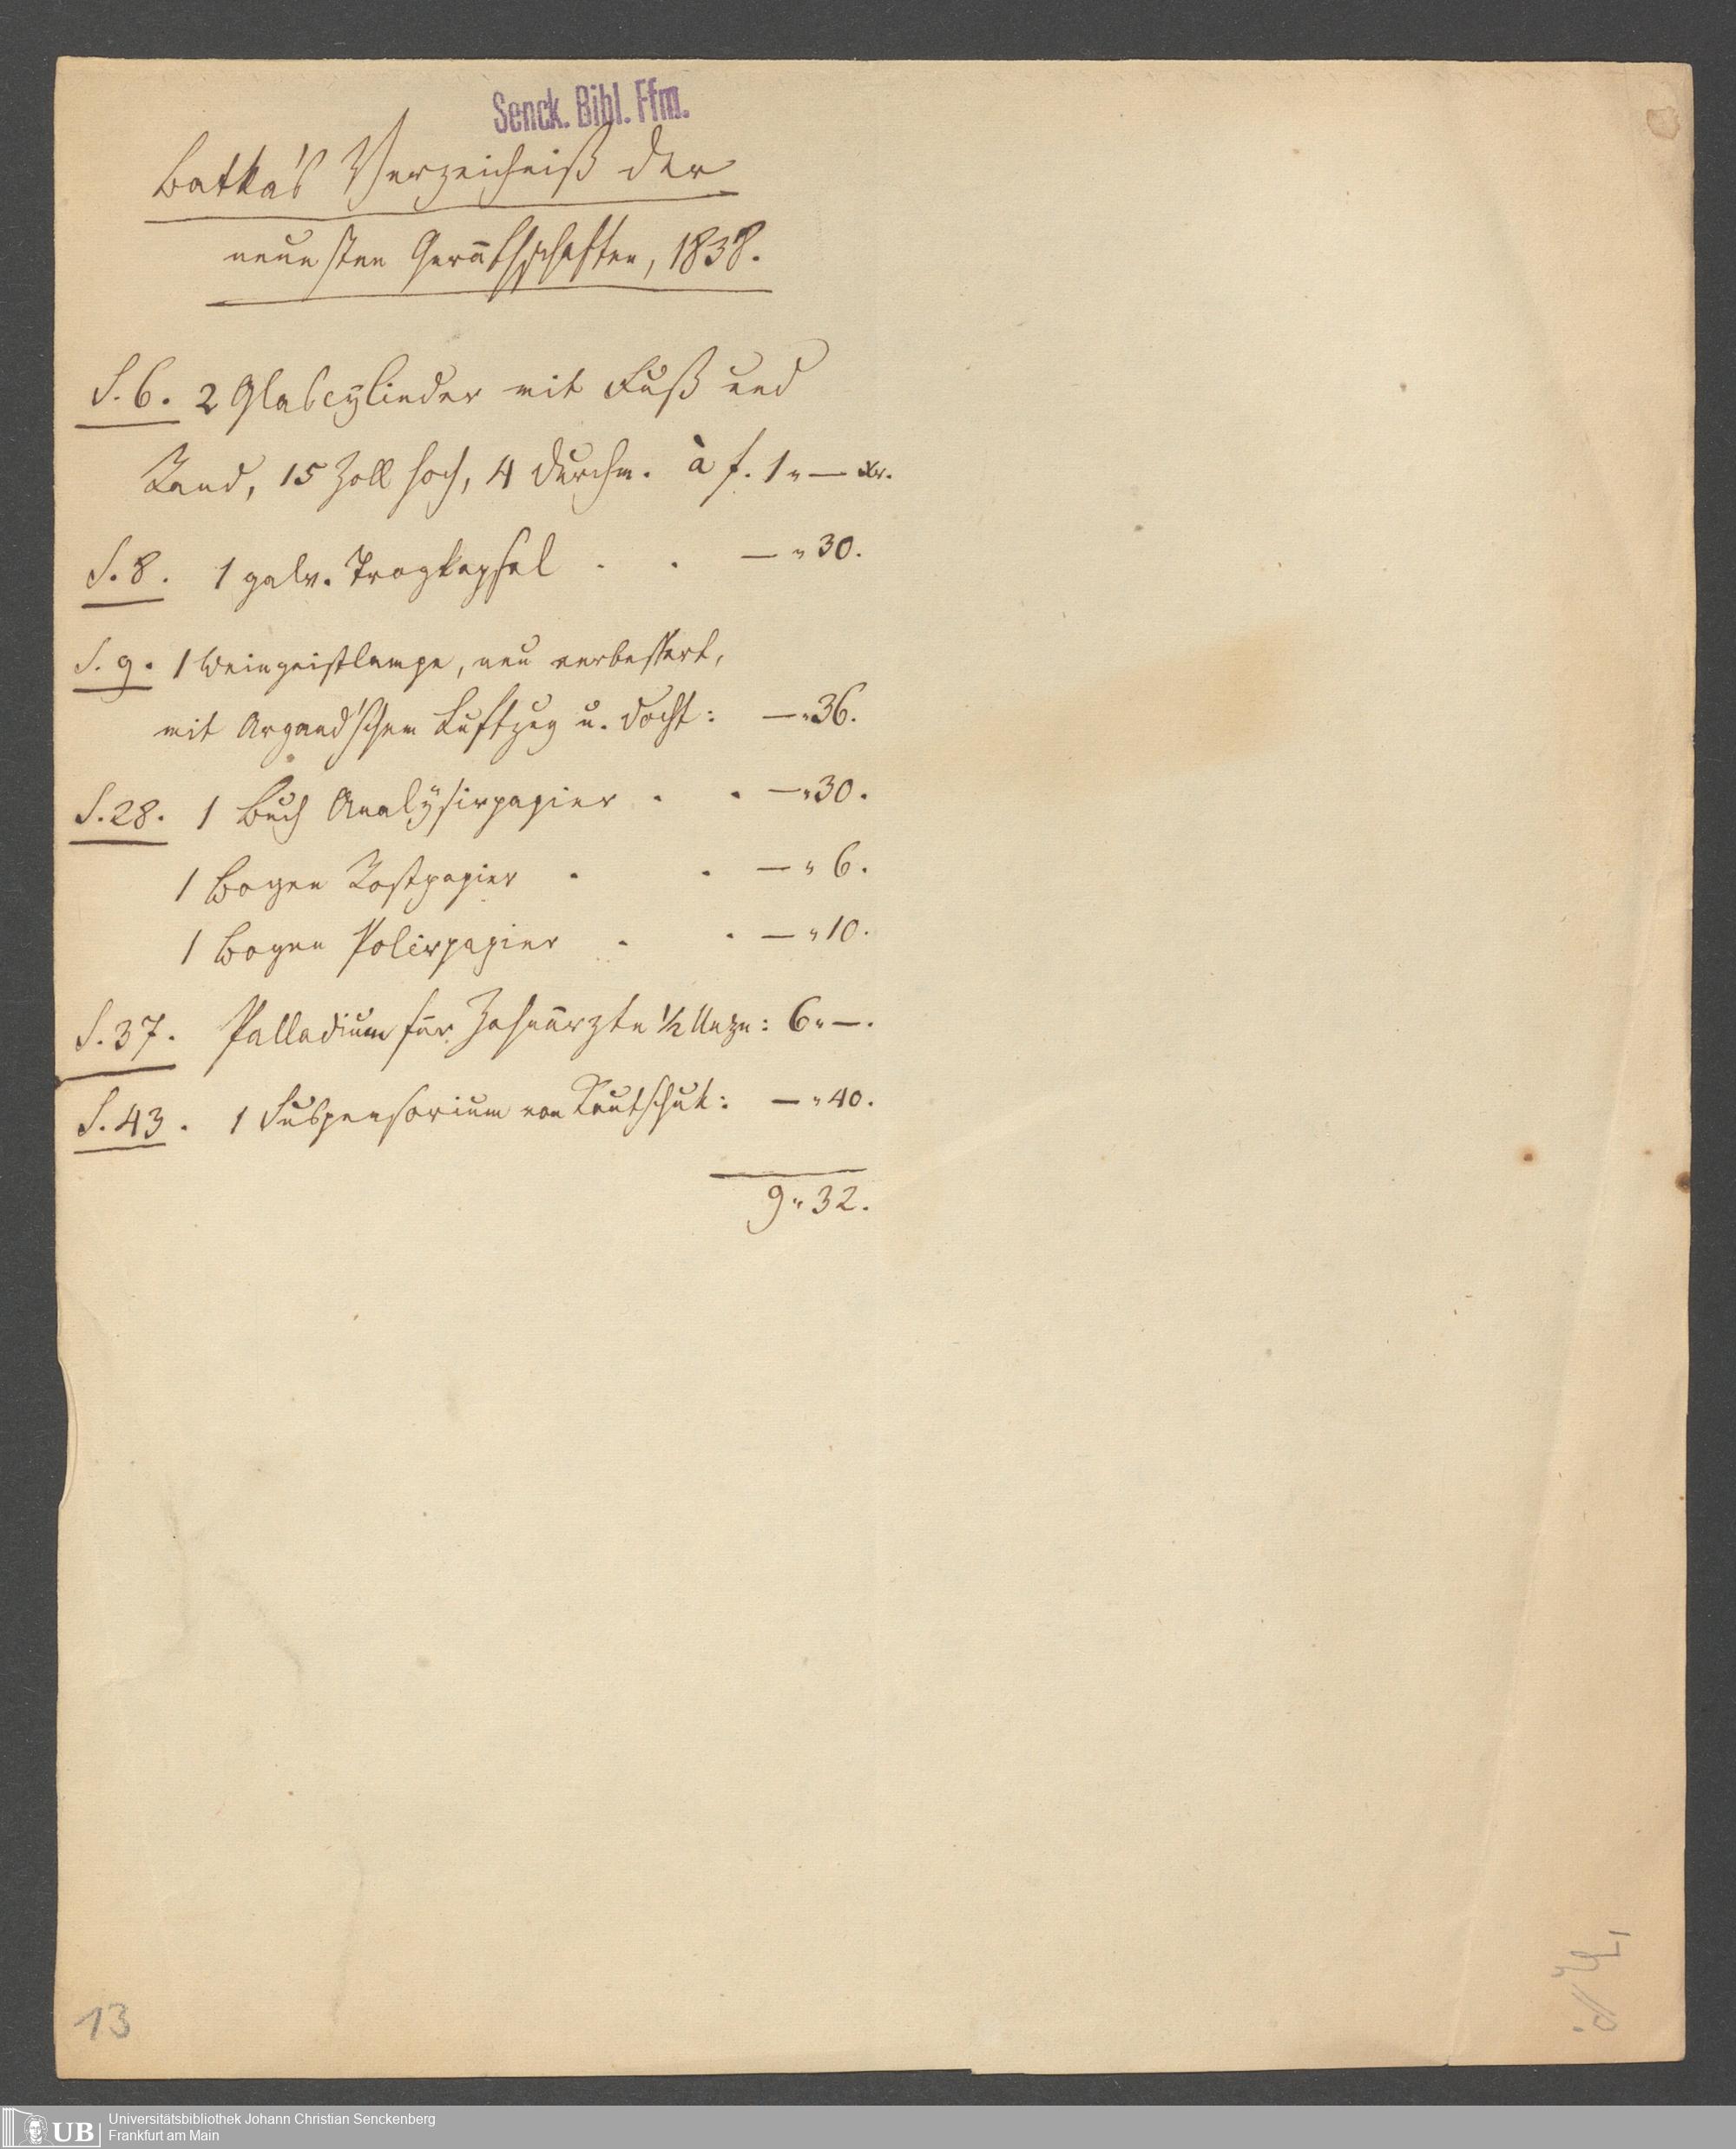 Senck. Bibl. Ffm.
Batka's Verzeichniß der
neuesten Geräthschaften, 1838.
S. 6. 2 Glascylinder mit Fuß und
Rand, 15 Zoll hoch, 4 Durchm. à f. 1 " — Xr.
S. 8. 1 galv. Trogkapsel . . — " 30.
S. 9. 1 Weingeistlampe, neu verbessert,
mit Argand'schem Luftzug u. Docht: — " 36.
S. 28. 1 Buch Analÿsirpapier . . — " 30.
1 Bogen Rostpapier . . — " 6.
1 Bogen Polirpapier . . — " 10.
S. 37. Palladium für Zahnärzte ½ Unze: 6 " —.
S. 43. 1 Suspensorium von Kautschuk: — " 40.
9 " 32.
13
UB
Universitätsbibliothek Johann Christian Senckenberg
Frankfurt am Main